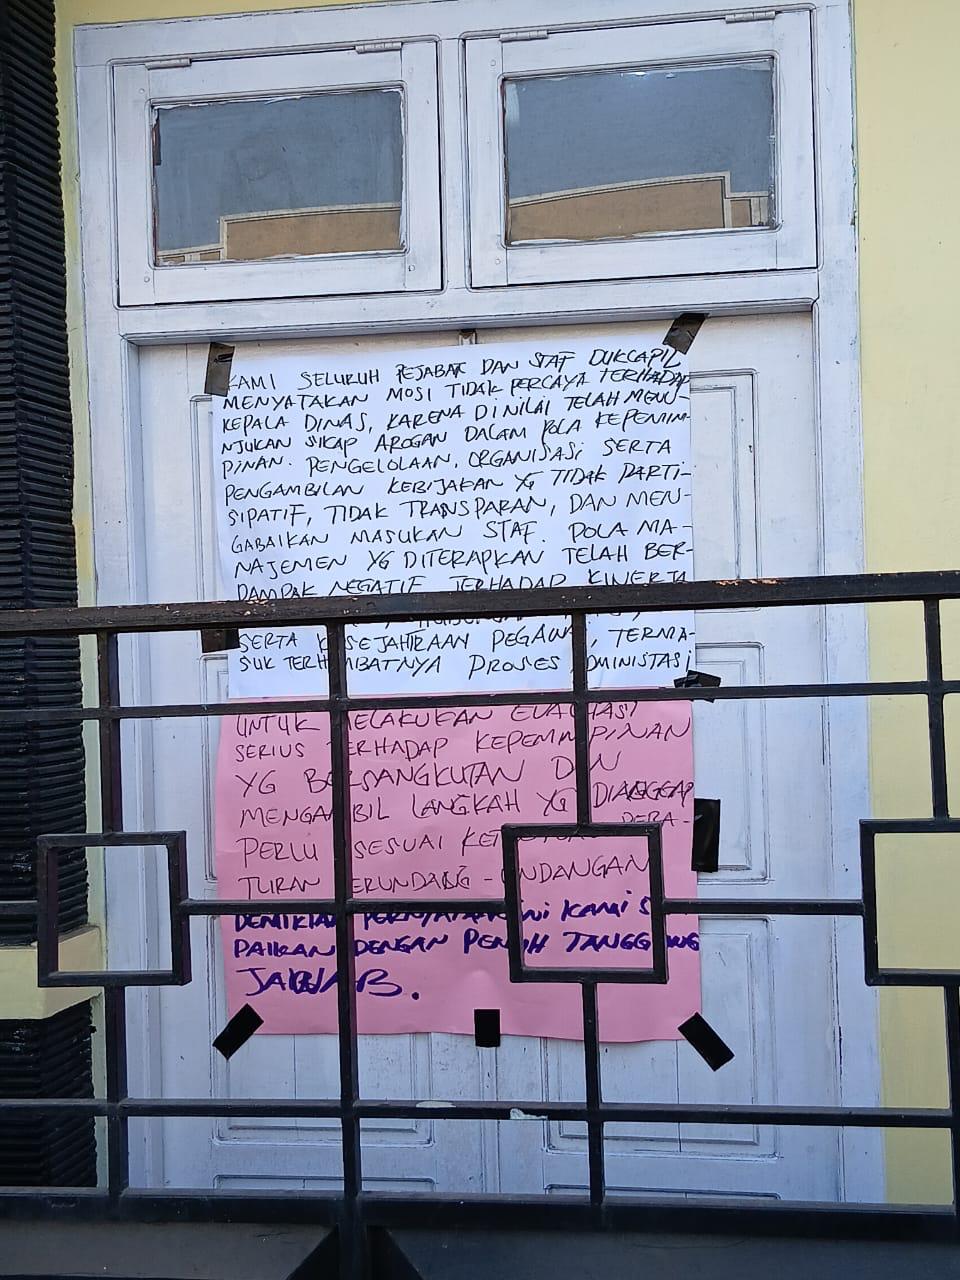 KAMI SELURUH PEJABAT DAN STAF DUKCAPIL
MENYATAKAN MOSI TIDAK PERCAYA TERHADAP
KEPALA DINAS, KARENA DINILAI TELAH MENU-
NJUKAN SIKAP AROGAN DALAM POLA KEPEMIM-
PINAN. PENGELOLAAN, ORGANISASI SERTA
PENGAMBILAN KEBIJAKAN YG TIDAK PARTI-
SIPATIF, TIDAK TRANSPARAN, DAN MEN-
GABAIKAN MASUKAN STAF. POLA MA-
NAJEMEN YG DITERAPKAN TELAH BER-
DAMPAK NEGATIF TERHADAP KINERJA
SERTA KESEJAHTRAAN PEGAWAI, TERMA-
SUK TERHAMBATNYA PROSES ADMINISTASI
UNTUK MELAKUKAN EVALUASI
SERIUS TERHADAP KEPEMIMPINAN
YG BERSANGKUTAN DAN
MENGAMBIL LANGKAH YG DIANGGAP
PERLU SESUAI PERA-
TURAN PERUNDANG-UNDANGAN
DEMIKIAN PERNYATAAN INI KAMI S
PAIKAN DENGAN PENUH TANGGUNG
JAWAB.